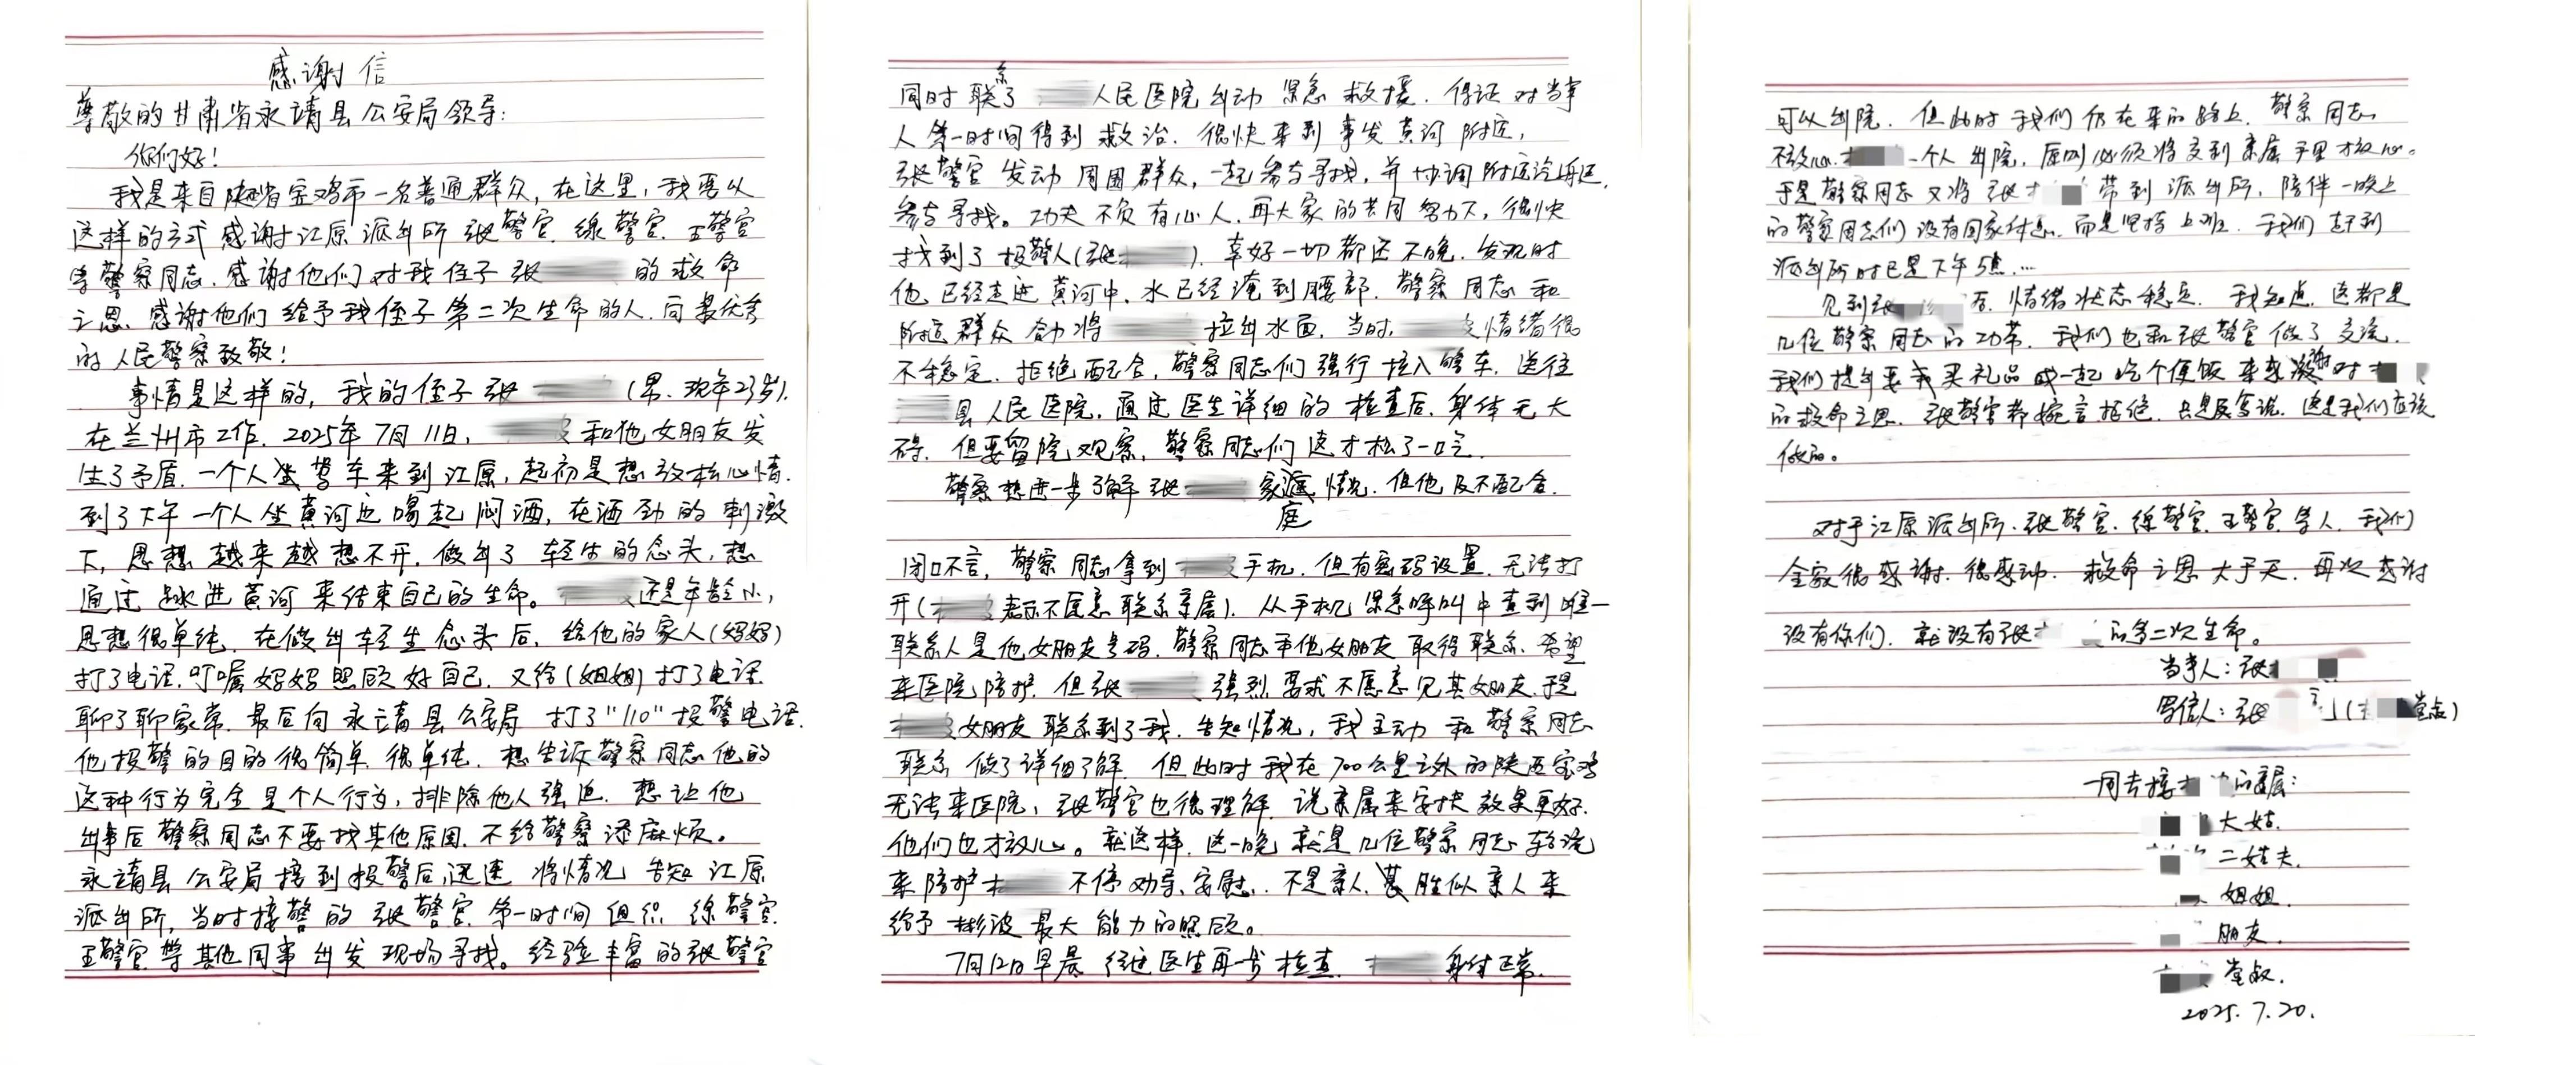 感谢信
尊敬的甘肃省永靖县公安局领导:
你们好!
我是来自陕省宝鸡市一名普通群众,在这里,我要以
这样的方式感谢江原派出所张警官、徐警官、王警官
等警察同志,感谢他们对我侄子张 的救命
之恩,感谢他们给予我侄子第二次生命的人,向最优秀
的人民警察致敬!
事情是这样的,我的侄子张 (男、现年23岁).
在兰州市工作,2025年7月11日, 和他女朋友发
生了矛盾,一个人坐驾车来到江原,起初是想放松心情.
到了下午一个人坐黄河边喝起闷酒,在酒劲的刺激
下,思想越来越想不开,做出了轻生的念头,想
通过跳进黄河来结束自己的生命。 还是年龄小,
思想很单纯,在做出轻生念头后,给他的家人(妈妈)
打了电话,叮嘱妈妈照顾好自己,又给(姐姐)打了电话
聊了聊家常,最后向永靖县公安局打了"110"报警电话.
他报警的目的很简单很单纯,想告诉警察同志他的
这种行为完全是个人行为,排除他人强迫,想让他
出事后警察同志不要找其他原因,不给警察添麻烦。
永靖县公安局接到报警后,迅速将情况告知江原
派出所,当时接警的张警官第一时间组织徐警官
王警官等其他同事出发现场寻找。经验丰富的张警官
同时联系了 人民医院出动紧急救援,保证对当事
人第一时间得到救治.很快来到事发黄河附近,
张警官发动周围群众,一起参与寻找,并协调附近
参与寻找。功夫不负有心人,再大家的共同努力下,很快
找到了报警人(张 ).幸好一切都还不晚,发现时
他已经走进黄河中,水已经淹到腰部,警察同志和
附近群众合力将 拉出水面,当时, 情绪很
不稳定,拒绝配合,警察同志们强行拉入警车,送往
县人民医院,通过医生详细的检查后,身体无大
碍,但要留院观察,警察同志们这才松了一口气.
警察想进一步了解张 家庭情况,但他及不配合,
闭口不言,警察同志拿到 手机,但有密码设置,无法打
开( 表示不愿意联系亲属).从手机紧急呼叫中查到唯一
联系人是他女朋友号码,警察同志和他女朋友取得联系,希望
来医院陪护,但张 强烈要求不愿意见其女朋友,于是
女朋友联系到了我,告知情况,我主动和警察同志
联系做了详细了解,但此时我在700公里之外的陕西宝鸡
无法来医院,张警官也很理解,说亲属来安抚效果更好.
他们也才放心。就这样,这一晚就是几位警察同志轮流
来陪护 不停劝导、安慰,不是亲人,甚胜似亲人来
给予彬波最大能力的照顾。
7月12日早晨经过医生再步检查, 身体正常.
可以出院,但此时我们仍在来的路上,警察同志
不放心 一个人出院,原则必须将交到亲属手里才放心。
于是警察同志又将张 带到派出所,陪伴一晚上
的警察同志们没有回家休息,而是坚持上班,我们赶到
派出所时已是下午5点…
见到张 后,情绪状态稳定,我知道,这都是
几位警察同志的功劳,我们也和张警官做了交流,
我们提出要买礼品或一起吃个便饭来感谢对
的救命之恩,张警官都婉言拒绝,只是反复说,这是我们应该
做的。
对于江原派出所、张警官、徐警官、王警官等人,我们
全家很感谢、很感动,救命之恩大于天,再次感谢
没有你们,就没有张 的第二次生命。
当事人:张
写信人:张 ( 堂叔)
一同去接 的亲属:
大姑.
二姑夫.
姐姐.
朋友.
堂叔.
2025.7.20.